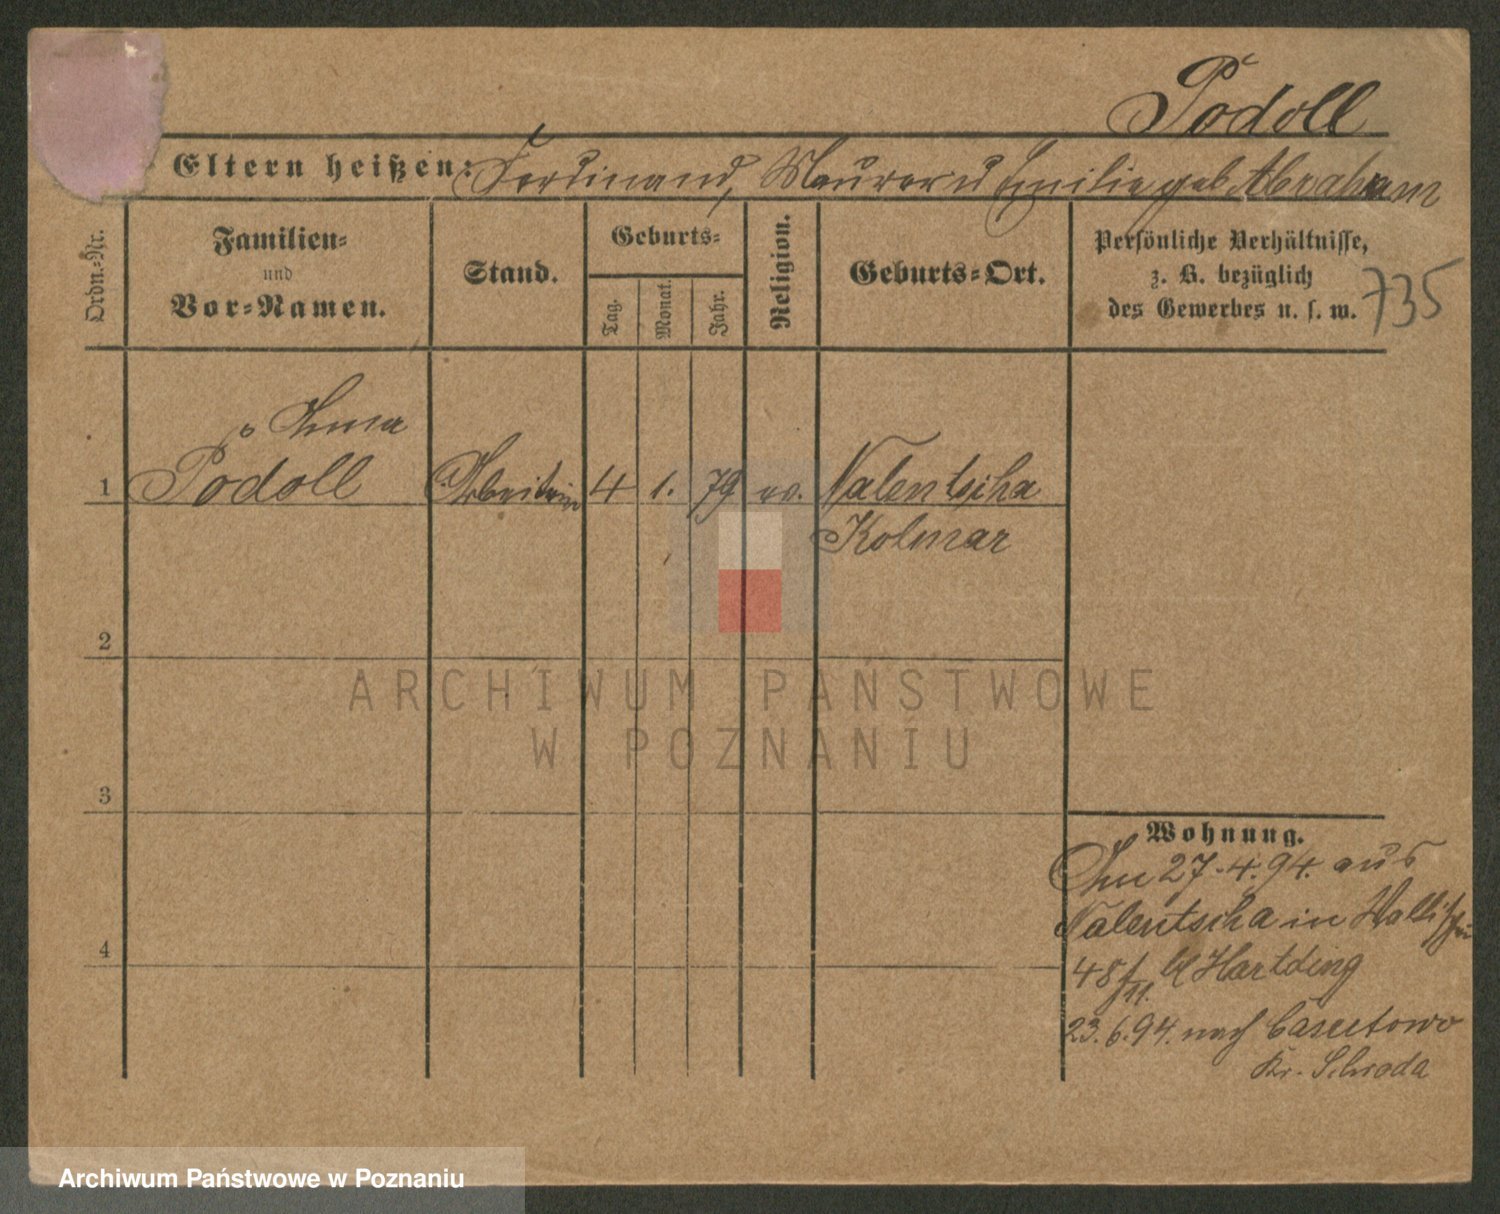 Podoll
Eltern heißen: Ferdinand, Maurer u Emilie geb. Abraham
Ordn.-Nr.
Familien-
und
Vor-Namen.
Stand.
Geburts-
Tag.
Monat.
Jahr.
Religion.
Geburts-Ort.
Persönliche Verhältnisse,
z. B. bezüglich
des Gewerbes u. s. w.
735
1 Podoll Arbeiterin 4 1. 79 ev. Nalentscha
Kolmar
2
3
4
Wohnung.
27.4.94. aus
Nalentscha in
48/11. Hartding
23.6.94. nach
Kr. Schroda
ARCHIWUM PAŃSTWOWE
W POZNANIU
Archiwum Państwowe w Poznaniu